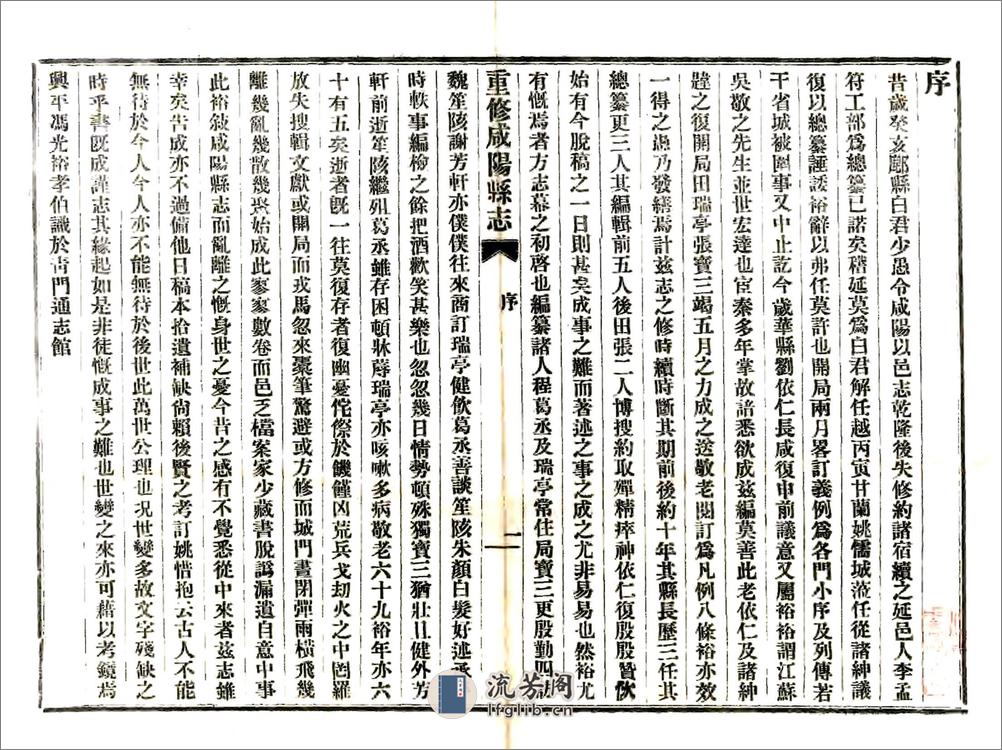 序
昔歲癸亥鄠縣白君少愚令咸陽以邑志乾隆後失修約諸宿續之延邑人李孟
符工部爲總纂已諾矣稽延莫爲白君解任越丙寅甘蘭姚儒城蒞任從諸紳議
復以總纂諈諉裕辭以弗任莫許也開局兩月畧訂義例爲各門小序及列傳若
干省城被圍事又中止訖今歲華縣劉依仁長咸復申前議意又屬裕裕謂江蘇
吳敬之先生並世宏達也宦秦多年掌故諳悉欲成茲編莫善此老依仁及諸紳
韙之復開局田瑞亭張寶三竭五月之力成之送敬老閱訂爲凡例八條裕亦效
一得之慮乃發繕焉計茲志之修時續時斷其期前後約十年其縣長歷三任其
總纂更三人其編輯前五人後田張二人博搜約取殫精瘁神依仁復殷殷贊佽
始有今脫稿之一日則甚矣成事之難而著述之事之成之尤非易易也然裕尤
有慨焉者方志幕之初啓也編纂諸人程葛丞及瑞亭常住局寶三更殷勤四
重修咸陽縣志
序
一
魏笙陔謝芳軒亦僕僕往來商訂瑞亭健飲葛丞善談笙陔朱顏白髮好述
時軼事編檢之餘把酒歡笑甚樂也忽忽幾日情勢頓殊獨寶三猶壯且健外芳
軒前逝笙陔繼殂葛丞雖存困頓牀蓐瑞亭亦咳嗽多病敬老六十九裕年亦六
十有五矣逝者旣一往莫復存者復幽憂侘傺於饑饉凶荒兵戈劫火之中罔羅
放失搜輯文獻或開局而戎馬忽來橐筆驚避或方修而城門晝閉彈雨橫飛幾
離幾亂幾散幾聚始成此寥寥數卷而邑乏檔案家少藏書脫譌漏遺自意中事
此裕敍咸陽縣志而亂離之慨身世之憂今昔之感有不覺悉從中來者茲志雖
幸矣告成亦不過備他日稿本拾遺補缺尚賴後賢之考訂姚惜抱云古人不能
無待於今人今人亦不能無待於後世此萬世公理也况世變多故文字殘缺之
時乎書既成謹志其緣起如是非徒慨成事之難也世變之來亦可藉以考鏡焉
興平馮光裕孝伯識於靑門通志館
流芳閣
lfglib.cn